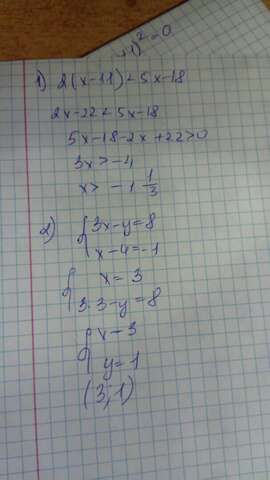 +1)² = 0
1) 2(x-11) < 5x-18
2x-22 < 5x-18
5x-18-2x+22>0
3x>-4
x> -1 1/3
2) { 3x-y=8
x-4=-1
{ x=3
3·3-y=8
{ x-3
y=1
(3;1)